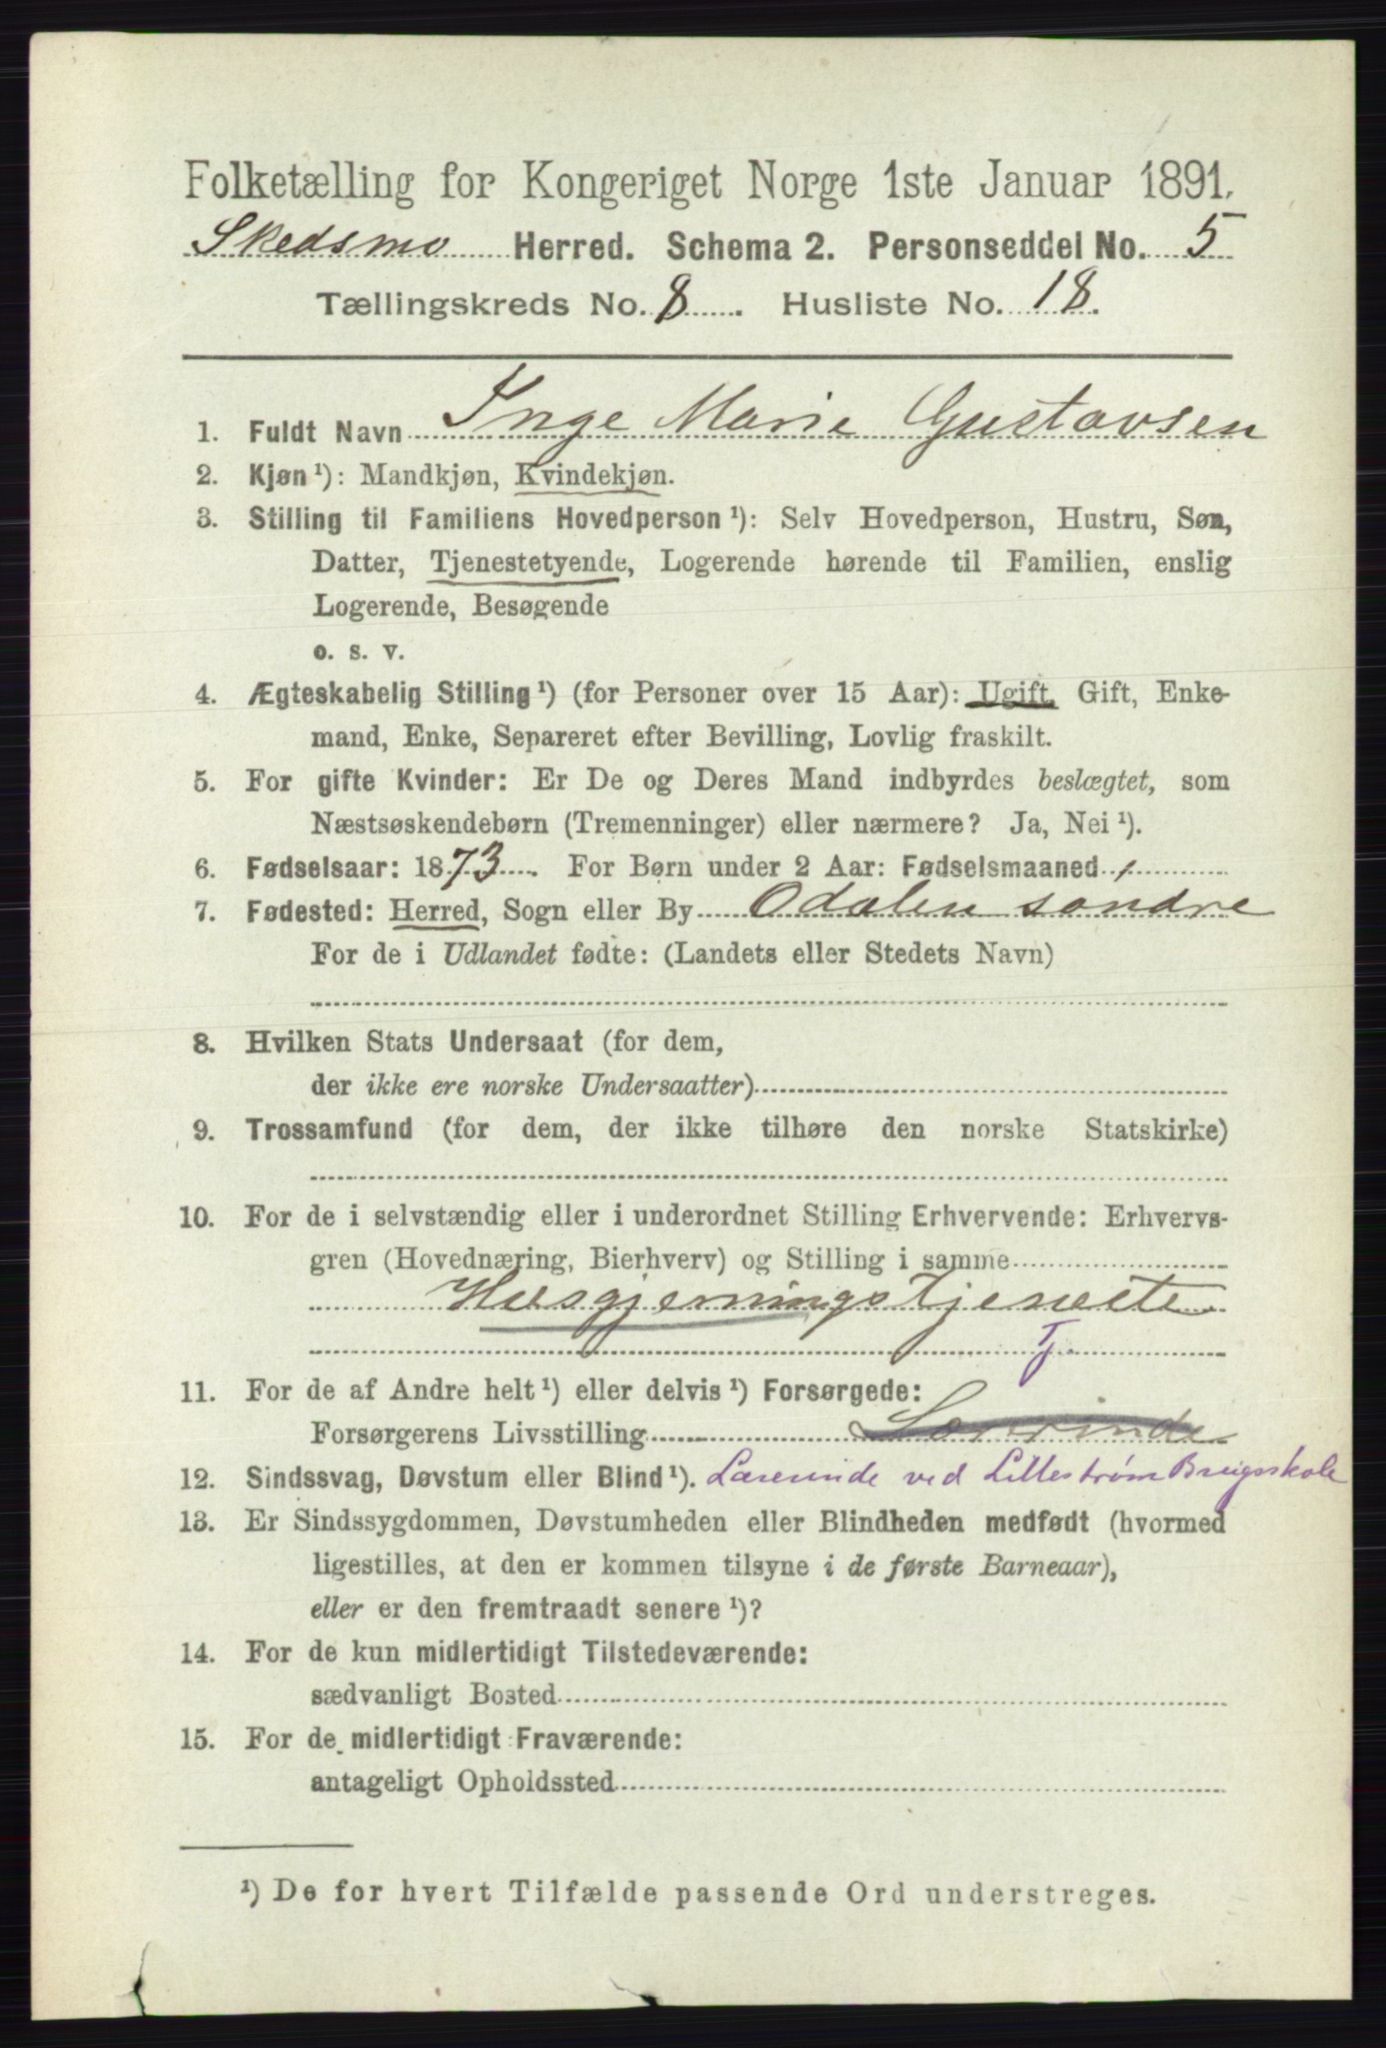 Folketælling for Kongeriget Norge 1ste Januar 1891.
Skedsmo Herred. Schema 2. Personseddel No. 5
Tællingskreds No. 8. Husliste No. 18.
1. Fuldt Navn Inge Marie Gustavsen
2. Kjøn ¹): Mandkjøn, Kvindekjøn.
3. Stilling til Familiens Hovedperson ¹): Selv Hovedperson, Hustru, Søn,
Datter, Tjenestetyende, Logerende hørende til Familien, enslig
Logerende, Besøgende
o. s. v.
4. Ægteskabelig Stilling ¹) (for Personer over 15 Aar): Ugift, Gift, Enke-
mand, Enke, Separeret efter Bevilling, Lovlig fraskilt.
5. For gifte Kvinder: Er De og Deres Mand indbyrdes beslægtet, som
Næstsøskendebørn (Tremenninger) eller nærmere? Ja, Nei ¹).
6. Fødselsaar: 1873. For Børn under 2 Aar: Fødselsmaaned
7. Fødested: Herred, Sogn eller By Odalen søndre
For de i Udlandet fødte: (Landets eller Stedets Navn)
8. Hvilken Stats Undersaat (for dem,
der ikke ere norske Undersaatter)
9. Trossamfund (for dem, der ikke tilhøre den norske Statskirke)
10. For de i selvstændig eller i underordnet Stilling Erhvervende: Erhvervs-
gren (Hovednæring, Bierhverv) og Stilling i samme
Husgjerningstjeneste
Tj.
11. For de af Andre helt ¹) eller delvis ¹) Forsørgede:
Forsørgerens Livsstilling Lærerinde
12. Sindssvag, Døvstum eller Blind ¹). Lærerinde ved Lillestrøm Brugsskole
13. Er Sindssygdommen, Døvstumheden eller Blindheden medfødt (hvormed
ligestilles, at den er kommen tilsyne i de første Barneaar),
eller er den fremtraadt senere ¹)?
14. For de kun midlertidigt Tilstedeværende:
sædvanligt Bosted
15. For de midlertidigt Fraværende:
antageligt Opholdssted
¹) De for hvert Tilfælde passende Ord understreges.